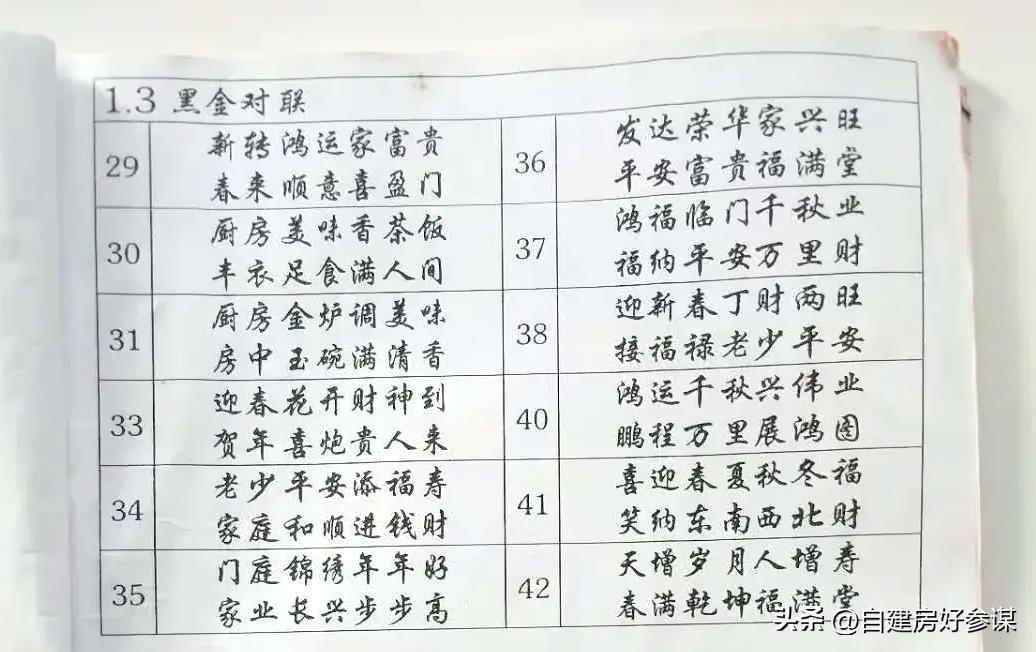 1.3 黑金对联
29
新转鸿运家富贵
春来顺意喜盈门
30
厨房美味香茶饭
丰衣足食满人间
31
厨房金炉调美味
房中玉碗满清香
33
迎春花开财神到
贺年喜炮贵人来
34
老少平安添福寿
家庭和顺进钱财
35
门庭锦绣年年好
家业长兴步步高
36
发达荣华家兴旺
平安富贵福满堂
37
鸿福临门千秋业
福纳平安万里财
38
迎新春丁财两旺
接福禄老少平安
40
鸿运千秋兴伟业
鹏程万里展鸿图
41
喜迎春夏秋冬福
笑纳东南西北财
42
天增岁月人增寿
春满乾坤福满堂
头条 @自建房好参谋